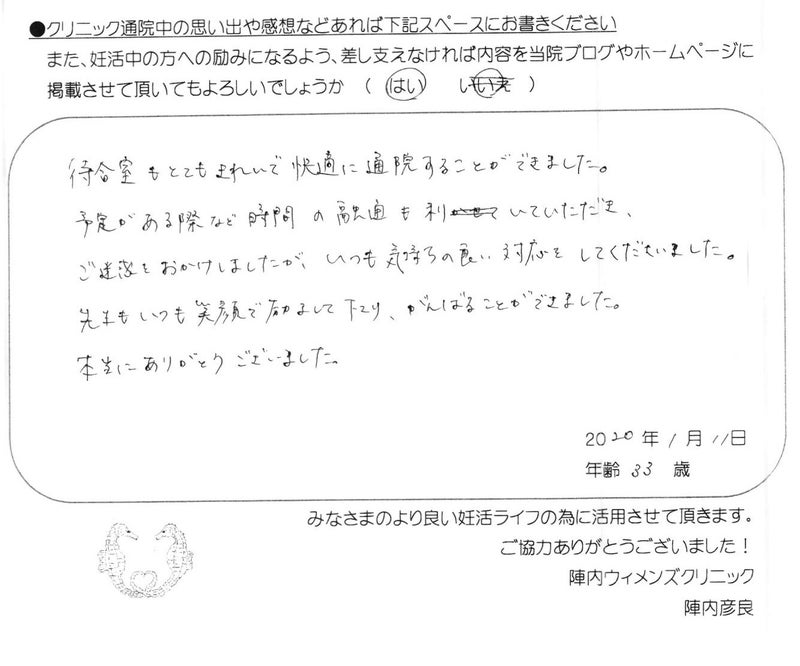 ●クリニック通院中の思い出や感想などあれば下記スペースにお書きください
また、妊活中の方への励みになるよう、差し支えなければ内容を当院ブログやホームページに
掲載させて頂いてもよろしいでしょうか （ はい いいえ ）
待合室もとてもきれいで快適に通院することができました。
予定がある際など時間の融通も利かせていていただき、
ご迷惑をおかけしましたが、いつも気持ちの良い対応をしてくださいました。
先生もいつも笑顔で励まして下さり、がんばることができました。
本当にありがとうございました。
2020年1月11日
年齢 33 歳
みなさまのより良い妊活ライフの為に活用させて頂きます。
ご協力ありがとうございました！
陣内ウィメンズクリニック
陣内彦良